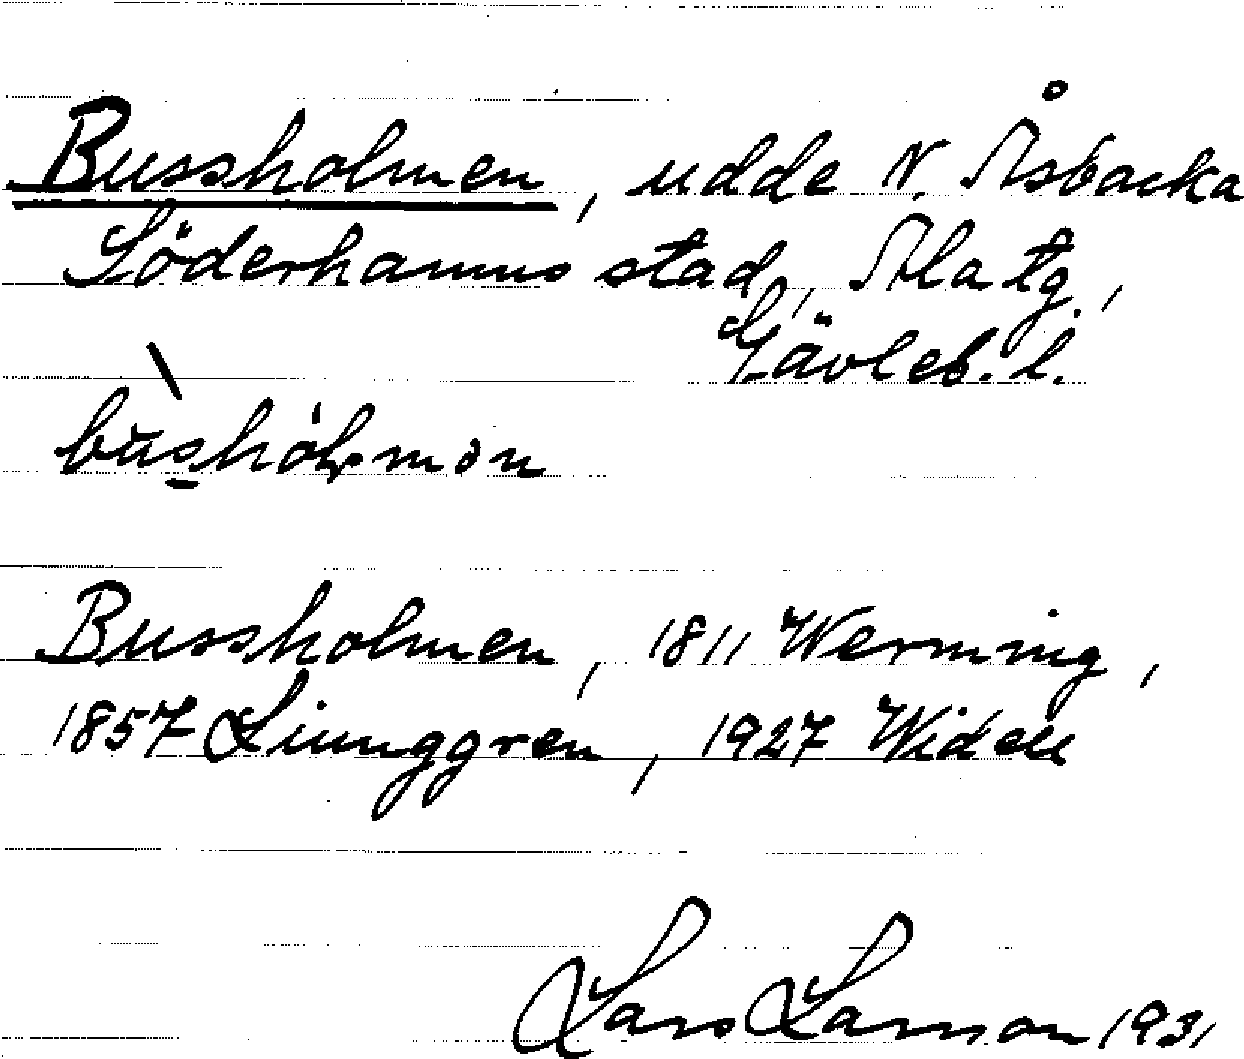 Bussholmen, udde N. Åsbacka
Söderhamns stad, Ala tg.,
Gävleb. l.
Bussholmen, 1811 Werming,
1857 Liunggren, 1927 Widell
Lars Larsson 1931